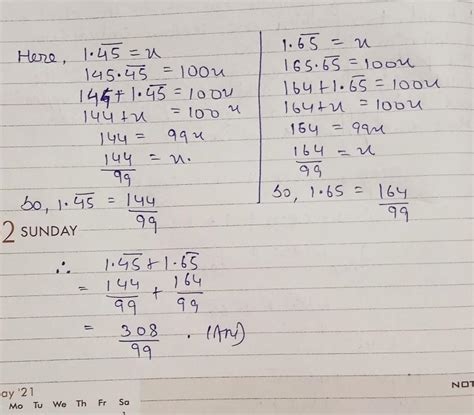 Here, 1.4̅5̅ = x
145.4̅5̅ = 100x
144 + 1.4̅5̅ = 100x
144 + x = 100x
144 = 99x
144/99 = x.
So, 1.4̅5̅ = 144/99
1.6̅5̅ = x
165.6̅5̅ = 100x
164 + 1.6̅5̅ = 100x
164 + x = 100x
164 = 99x
164/99 = x
So, 1.65 = 164/99
2 SUNDAY
∴ 1.4̅5̅ + 1.6̅5̅
= 144/99 + 164/99
= 308/99 . (Ans)
ay '21
Mo Tu We Th Fr Sa
1
NOT